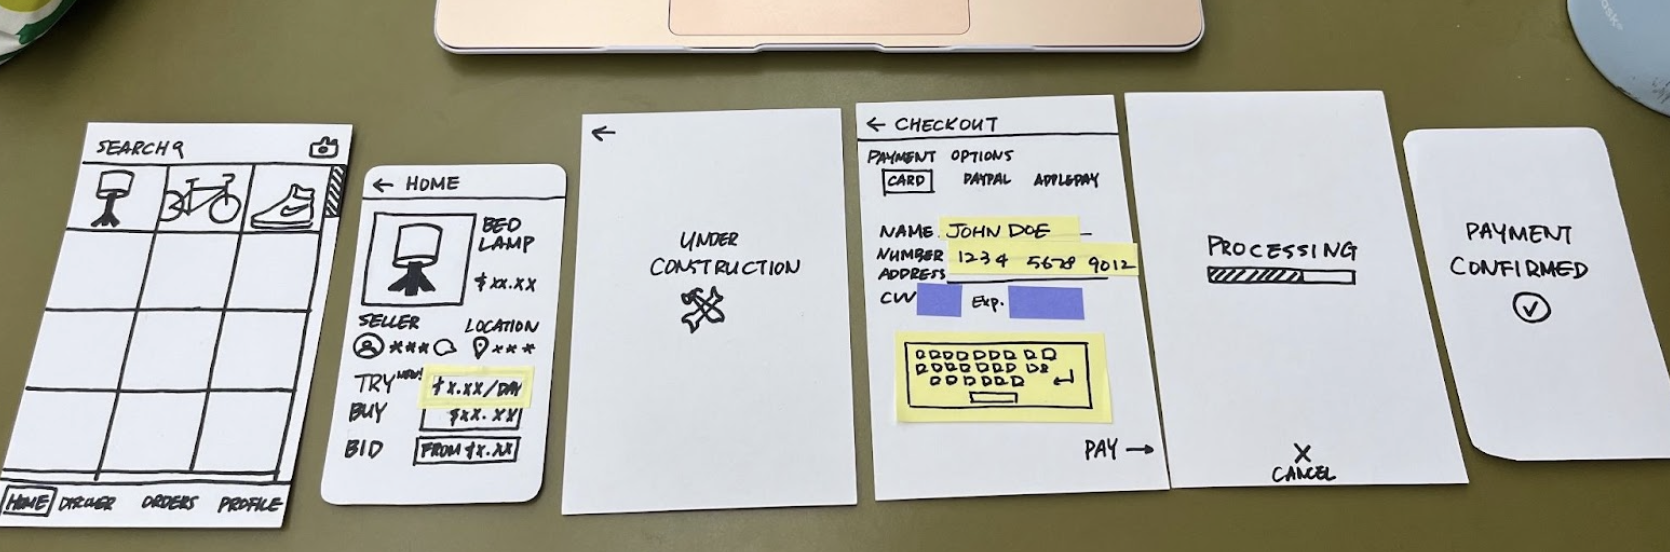 SEARCH
HOME
DISCOVER
ORDERS
PROFILE
← HOME
BED
LAMP
$xx.xx
SELLER
LOCATION
***
***
TRY NEW!
$x.xx/DAY
BUY
$xx.xx
BID
FROM $x.xx
←
UNDER
CONSTRUCTION
← CHECKOUT
PAYMENT OPTIONS
CARD PAYPAL APPLEPAY
NAME JOHN DOE
NUMBER 1234 5678 9012
ADDRESS
CVV Exp.
PAY →
PROCESSING
X
CANCEL
PAYMENT
CONFIRMED
✓